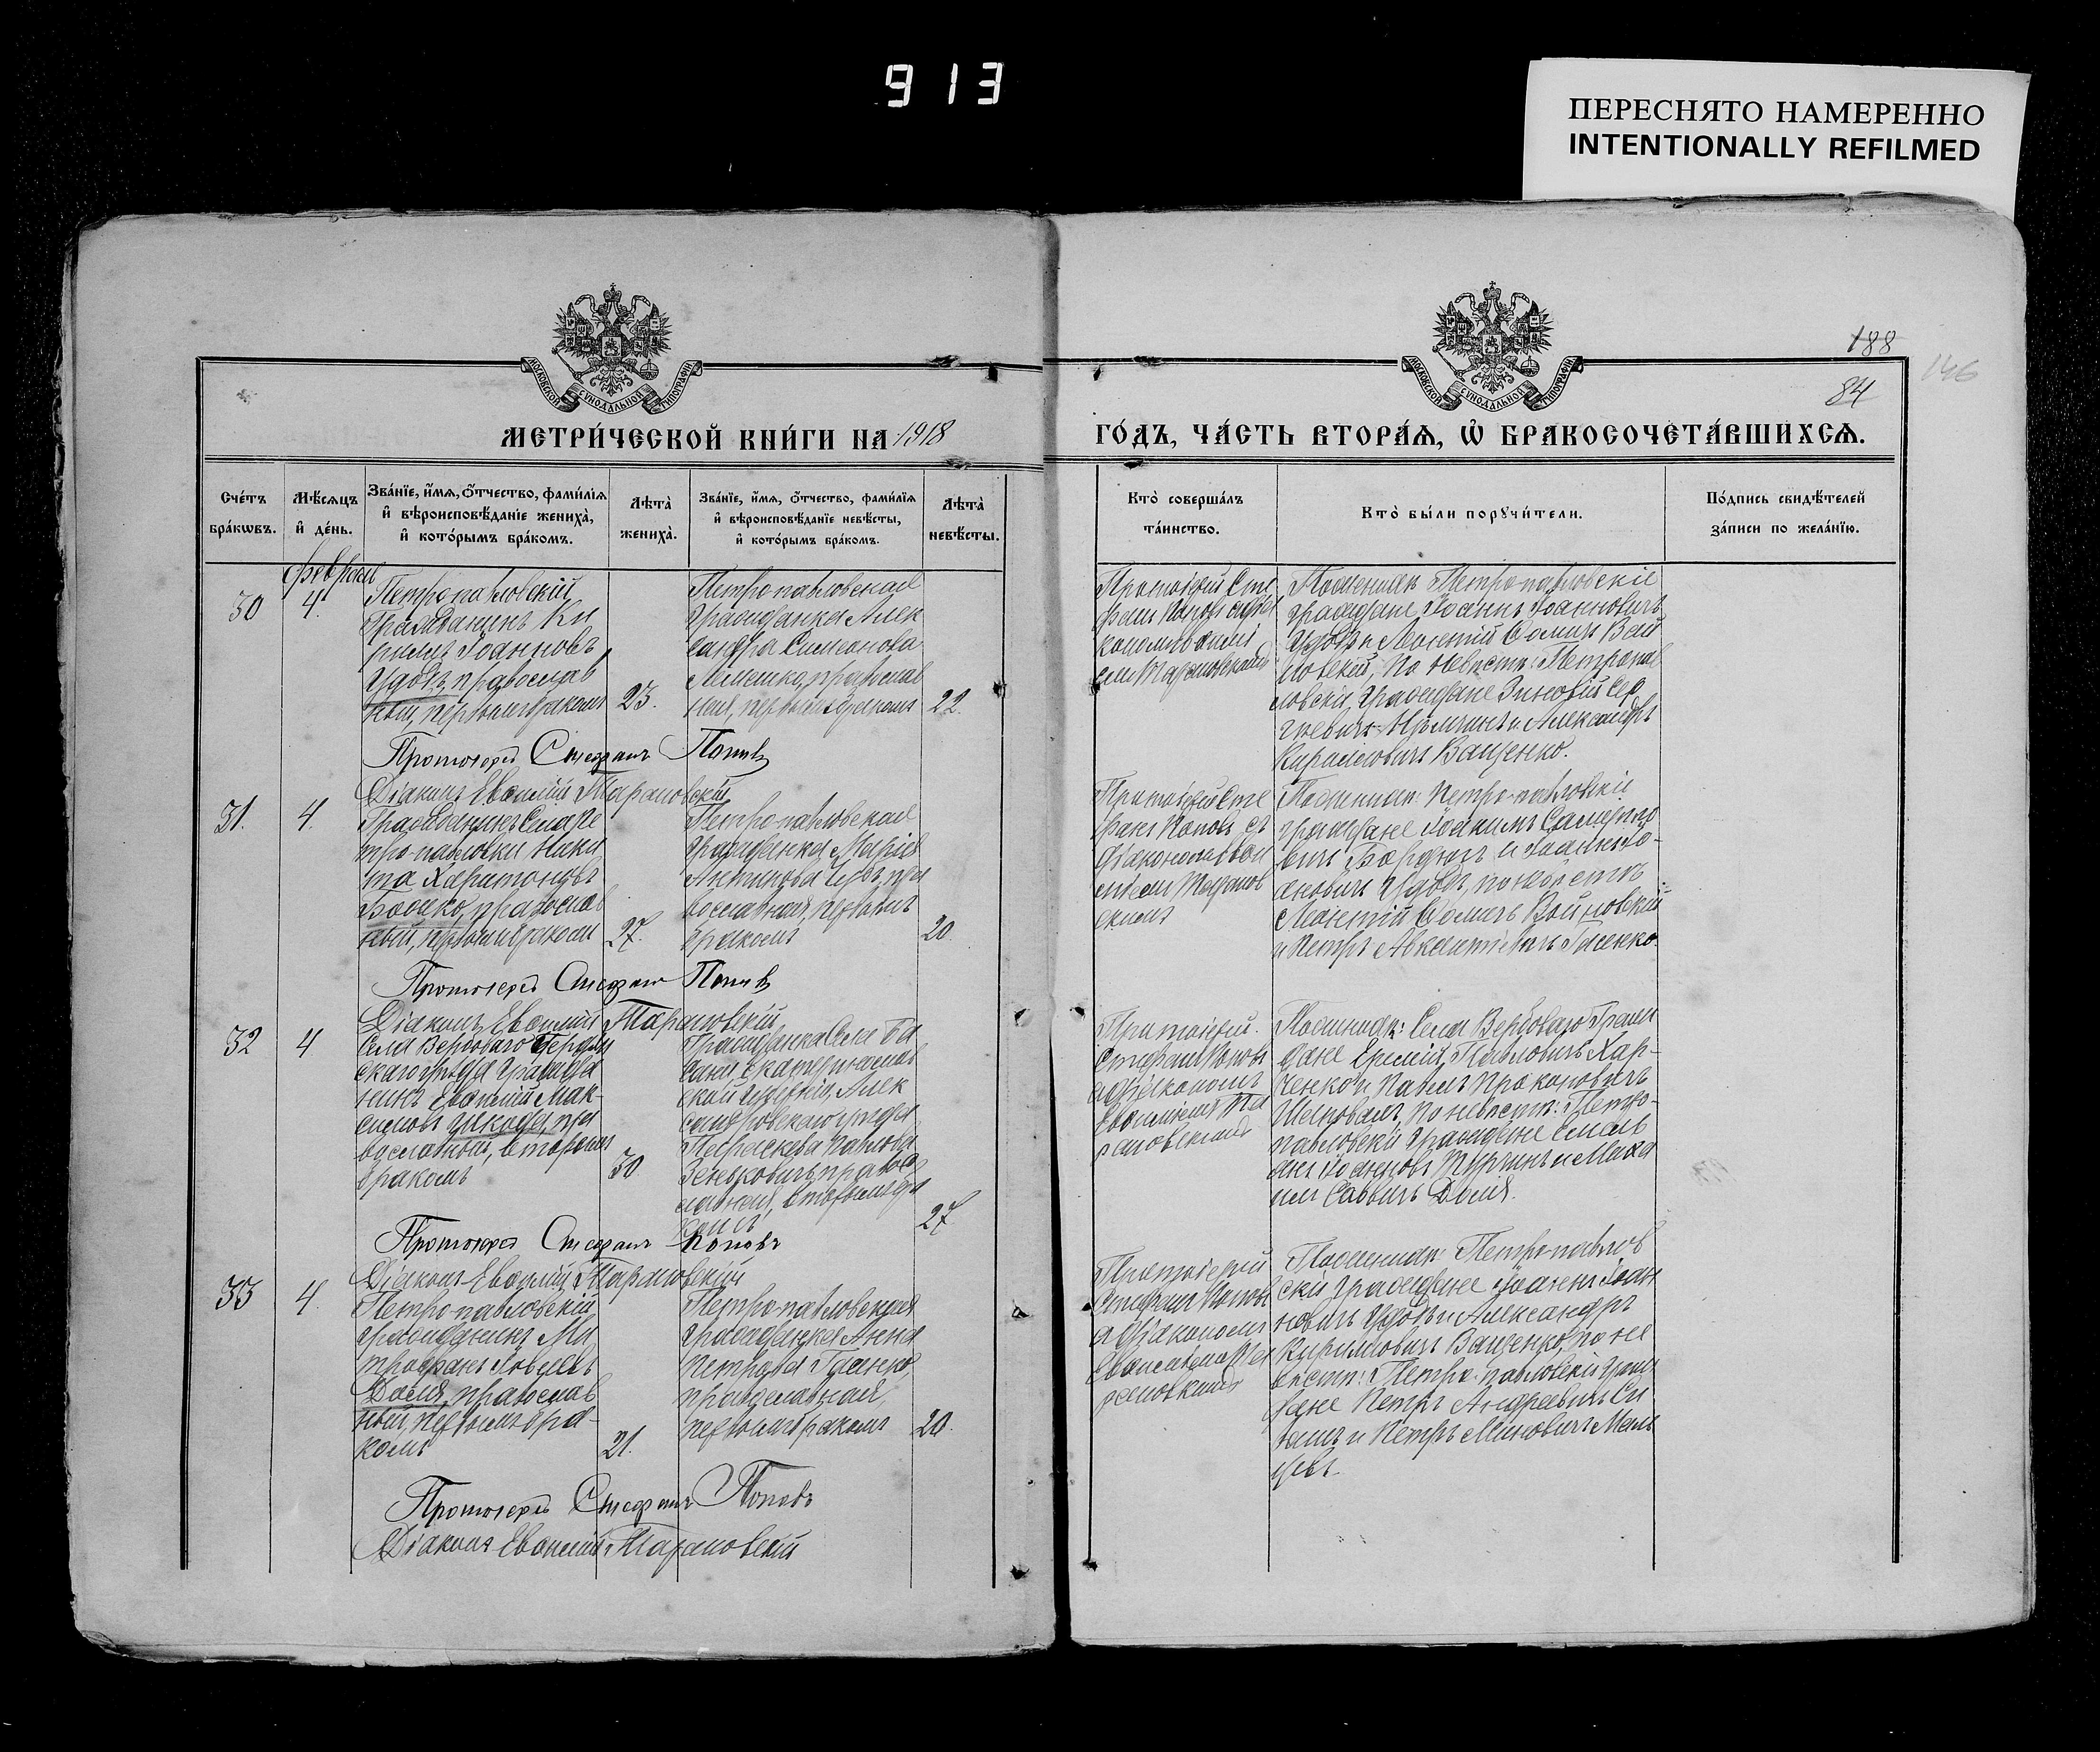 913
ПЕРЕСНЯТО НАМЕРЕННО
INTENTIONALLY REFILMED
188
146
84
МОСКОВСКОЙ СѴНОДАЛЬНОЙ ТИПОГРАФІИ
МОСКОВСКОЙ СѴНОДАЛЬНОЙ ТИПОГРАФІИ
МЕТРИ́ЧЕСКОЙ КНИ́ГИ НА 1918
ГО́ДЪ, ЧА́СТЬ ВТОРА́Ѧ, Ѡ҆ БРАКОСОЧЕТА́ВШИХСѦ.
Сче́тъ бра́кѡвъ.
Мѣ́сѧцъ и҆ де́нь.
Зва́нїе, и҆́мѧ, ѻ҆́тчество, фами́лїѧ
и҆ вѣроисповѣ́данїе жениха̀,
и҆ кото́рымъ бра́комъ.
Лѣта̀
жениха̀.
Зва́нїе, и҆́мѧ, ѻ҆́тчество, фами́лїѧ
и҆ вѣроисповѣ́данїе невѣ́сты,
и҆ кото́рымъ бра́комъ.
Лѣта̀
невѣ́сты.
Кто̀ соверша́лъ
та́инство.
Кто̀ бы́ли порꙋчи́тели.
По́дпись свидѣ́телей
за́писи по жела́нїю.
февраль
30
4.
Петро-павловскій
Гражданинъ Ки
риллъ Іоанновъ
Удовъ, православ
ный, первымъ бракомъ
25.
Петро-павловская
гражданка Алек
сандра Симеонова
православ
ная, первымъ бракомъ
22.
Протоіерей Сте
фанъ Поповъ съ діа
кономъ Евѳимі
емъ Тарановскимъ
По женихѣ Петро-павловскіе
граждане Іоаннъ Іоанновичъ
Удовъ и Леонтій Ѳомичъ Вой
новскій, по невѣстѣ: Петропав
ловскіе, граждане Зиновій Сер
гѣевичъ и Александръ
Кирилловичъ Ващенко.
Протоіерей Стефанъ Поповъ
Діаконъ Евѳимій Тарановскій
31.
4.
Гражданинъ села Пе
тро-павловки Ники
та Харитоновъ
Бойко, православ
ный, первымъ бракомъ
27.
Петро-павловская
гражданка Марія
Антипова пра
вославная, первымъ
бракомъ
20.
Протоіерей Сте
фанъ Поповъ съ
діакономъ Евѳи
міемъ Таранов
скимъ
По женихѣ: Петро-павловскіе
граждане Іоакимъ
вичъ и Іоаннъ Іо-
анновичъ Удовъ, по невѣстѣ
Леонтій Ѳомичъ Войновскій
и Петръ Гриенко.
Протоіерей Стефанъ Поповъ
Діаконъ Евѳимій Тарановскій
32
4
Села Вербоваго Бердян
скаго уѣзда гражда
нинъ Евѳимій Мак-
симовъ пра
вославный, вторымъ
бракомъ
30
Гражданка села
Екатеринослав
ской губерніи, Алек
сандровскаго уѣзда
Параскева Павлова
Зеньковичъ, правос
лавная, вторымъ бра
комъ
27
Протоіерей
Стефанъ Поповъ
съ діакономъ
Евѳиміемъ Та
рановскимъ
По женихѣ: Села Вербоваго граж
дане Еремій Павловичъ Хар-
ченко и Павелъ Прокоповичъ
Шаповалъ, по невѣстѣ: Петро-
павловскіе граждане
Іоанновъ Турчинъ и Миха
илъ Саввичъ Доля.
Протоіерей Стефанъ Поповъ
Діаконъ Евѳимій Тарановскій
33
4.
Петро-павловскій
гражданинъ Ми
трофанъ Іовлевъ
Доля, православ
ный, первымъ бра-
комъ
21.
Петро-павловская
гражданка Анна
Петрова
православная,
первымъ бракомъ
20.
Протоіерей
Стефанъ Поповъ
съ діакономъ
Евѳиміемъ Та
рановскимъ
По женихѣ: Петро-павлов
скіе граждане Іоаннъ Іоан
новичъ Удовъ и Александръ
Кирилловичъ Ващенко, по не
вѣстѣ: Петро-павловскіе граж
дане Петръ Андреевичъ Си
вашъ и Петръ Миновичъ Маль
цевъ.
Протоіерей Стефанъ Поповъ
Діаконъ Евѳимій Тарановскій